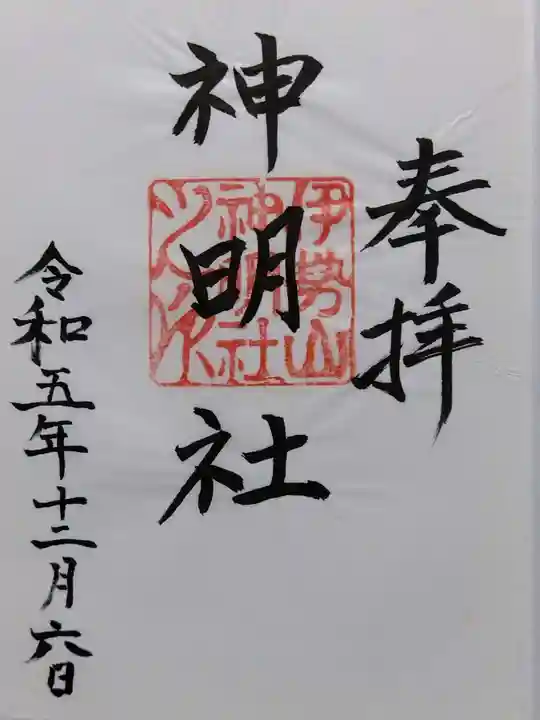 奉拝
神明社
伊勢山
神明社
令和五年十二月六日